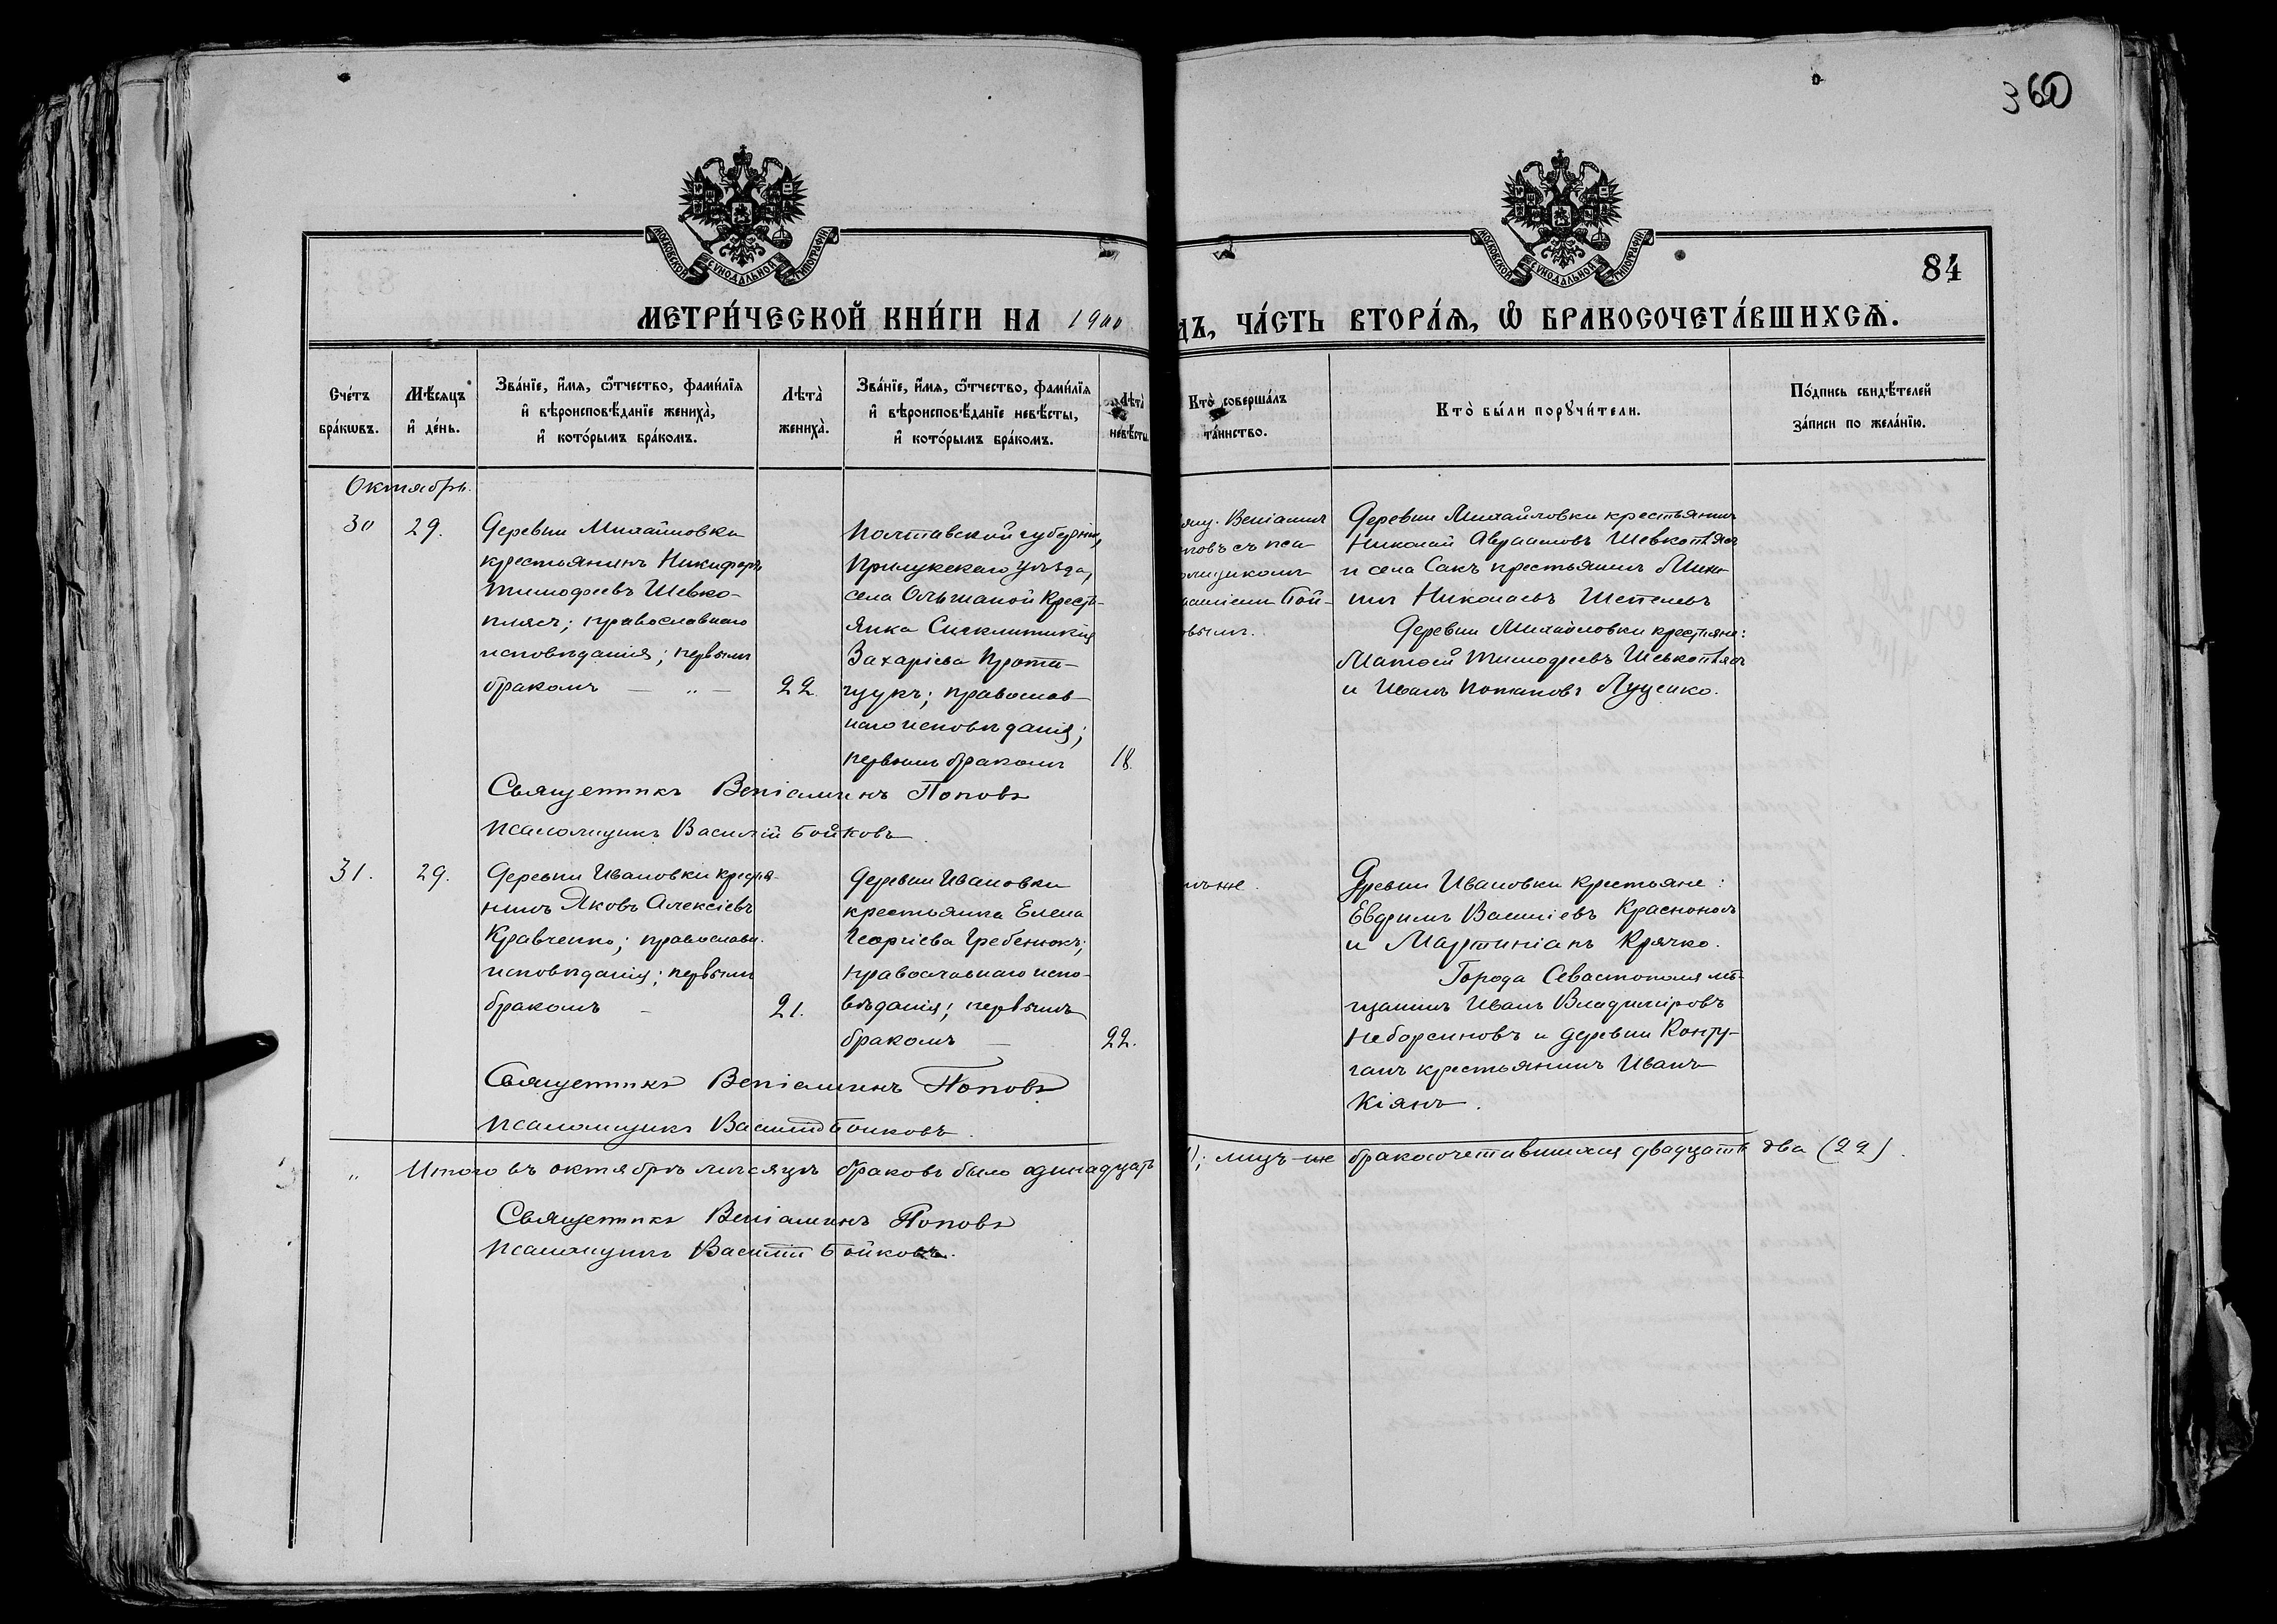 360
МОСКОВСКОЙ СУНОДАЛЬНОЙ ТИПОГРАФІИ
МОСКОВСКОЙ СУНОДАЛЬНОЙ ТИПОГРАФІИ
84
МЕТРИ́ЧЕСКОЙ КНИ́ГИ НА 1900
ДЪ, ЧА́СТЬ ВТОРА́Ѧ, Ѡ҆ БРАКОСОЧЕТА́ВШИХСѦ.
Сче́тъ
бра́кѡвъ.
Мѣ́сѧцъ
и҆ де́нь.
Зва́нїе, и҆́мѧ, ѻ҆́тчество, фами́лїѧ
и҆ вѣроисповѣ́данїе жениха̀,
и҆ кото́рымъ бра́комъ.
Лѣта̀
жениха̀.
Зва́нїе, и҆́мѧ, ѻ҆́тчество, фами́лїѧ
и҆ вѣроисповѣ́данїе невѣ́сты,
и҆ кото́рымъ бра́комъ.
Лѣта̀
невѣ́сты.
Кто̀ соверша́лъ
та́инство.
Кто̀ бы́ли порꙋчи́тели.
По́дпись свидѣ́телей
за́писи по жела́нїю.
Октябрь.
30
29.
Деревни Михайловки
крестьянинъ Никифоръ
Тимофеевъ Шевко-
плясъ; православнаго
исповѣданія; первымъ
бракомъ — „ —
22.
Полтавской губерніи,
Прилукскаго уѣзда,
села Ольшаной кресть-
янка
Захаріева
православ-
наго исповѣданія;
первымъ бракомъ
18.
Вениаминъ
повъ съ пса-
ломщикомъ
Бой-
овымъ.
Деревни Михайловки крестьянинъ
Николай Авраамовъ Шевкоплясъ
и села Сакъ крестьянинъ
Николаевъ Шепелевъ
Деревни Михайловки крестьяне:
Матѳей Тимофеевъ Шевкоплясъ
и Иванъ Потаповъ Луценко.
Священникъ Веніаминъ Поповъ
Псаломщикъ Василій Бойковъ.
31.
29.
Деревни Ивановки крестья-
нинъ Яковъ Алексіевъ
Кравченко; православн.
исповѣданія; первымъ
бракомъ —
21.
Деревни Ивановки
крестьянка Елена
Георгіева Гребенюкъ;
православнаго испо-
вѣданія; первымъ
бракомъ —
22.
же.
Деревни Ивановки крестьяне:
Евфимъ Василіевъ
и Мартиніанъ Крячко.
Города Севастополя мѣ-
щанинъ Иванъ Владиміровъ
Неборсиновъ и деревни Конту-
ганъ крестьянинъ Иванъ
Кіянъ.
Священникъ Веніаминъ Поповъ
Псаломщикъ Василій Бойковъ.
„ Итого въ октябрѣ мѣсяцѣ браковъ было одинадцать
); лицъ-же бракосочетавшихся двадцать два (22).
Священникъ Веніаминъ Поповъ
Псаломщикъ Василій Бойковъ.